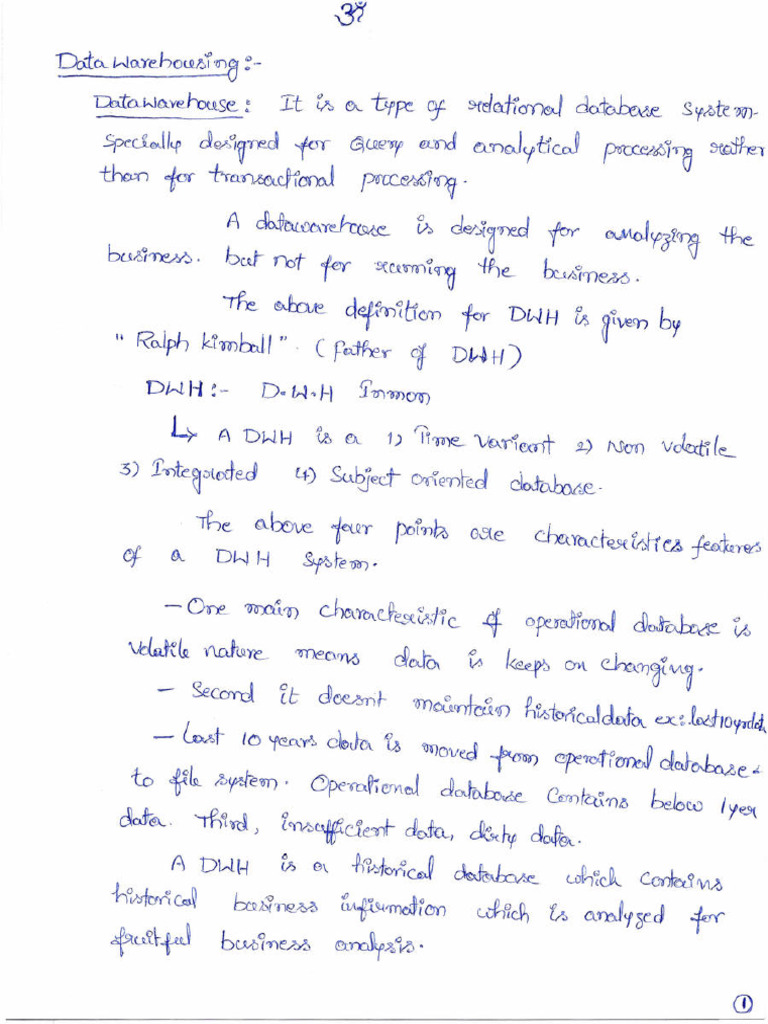 ॐ
Data Warehousing:-
Datawarehouse: It is a type of relational database system
specially designed for Query and analytical processing rather
than for transactional processing.
A datawarehouse is designed for analyzing the
business. but not for running the business.
The above definition for DWH is given by
"Ralph Kimball". (father of DWH)
DWH:- D.W.H Inmon
↳ A DWH is a 1) Time variant 2) Non volatile
3) Integrated 4) Subject oriented database.
The above four points are characteristics features
of a DWH system.
- One main characteristic of operational database is
volatile nature means data is keeps on changing.
- Second it doesn't maintain historical data ex: last 10 yrs data
- Last 10 years data is moved from operational database
to file system. Operational database contains below 1 year
data. Third, insufficient data, dirty data.
A DWH is a historical database which contains
historical business information which is analyzed for
fruitful business analysis.
1